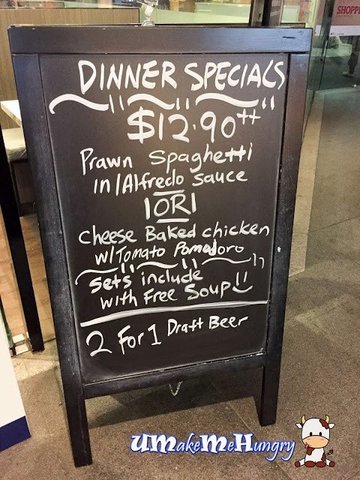 SHOPPI
DINNER SPECIALS
$12.90++
Prawn Spaghetti
in Alfredo sauce
|OR|
cheese Baked chicken
w/Tomato Pomodoro
sets include
with Free Soup
2 For 1 Draft Beer
UMakeMeHungry